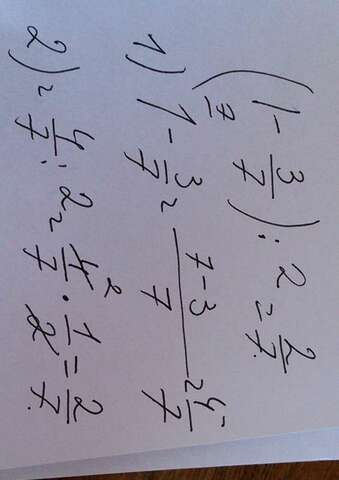 (1 - 3/7) : 2 = 2/7.
7
1) 1 - 3/7 = 7-3/7 = 4/7
2) = 4/7 : 2 = 4/7 · 1/2 = 2/7.
2